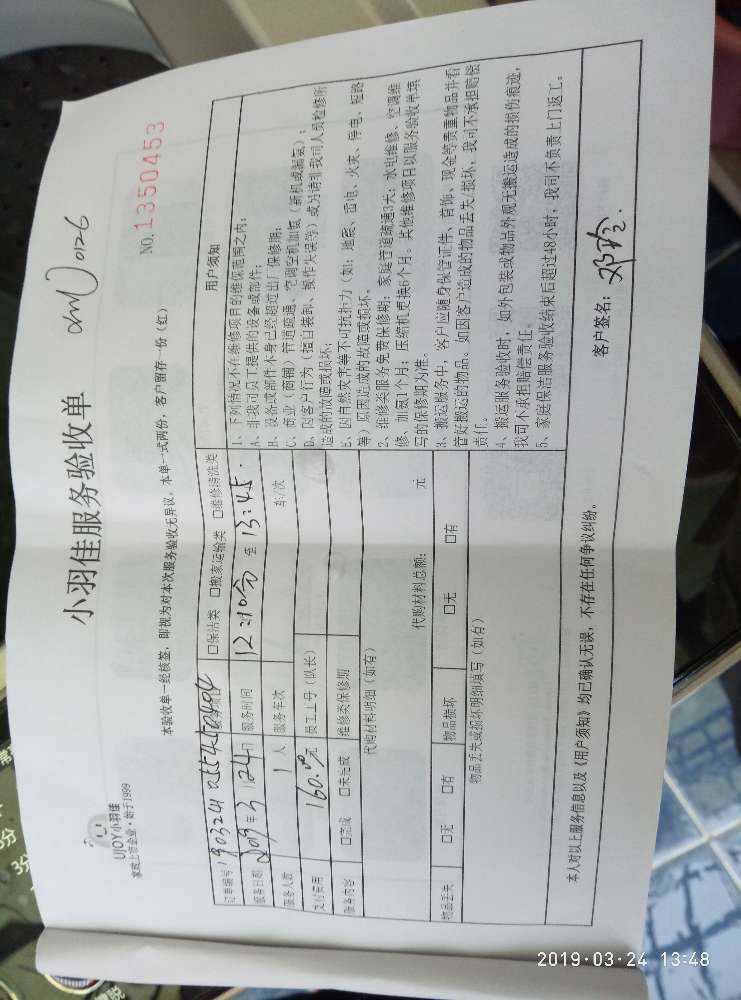 UJOY小羽佳
家政上市企业·始于1999
小羽佳服务验收单
0126
NO. 1350453
本验收单一经核签，即视为对本次服务验收无异议。本单一式两份，客户留存一份（红）
订单编号
服务类别 □保洁类 □搬家运输类 □维修清洗类
服务日期 2019年3月24日 服务时间 12:10分 至 13:45.
服务人数 1 人 服务车次 车/次
支付费用 160.00元 员工工号（队长）
服务内容 □完成 □未完成 维修类保修期
代购材料明细（如有）
代购材料总额： 元
物品丢失 □无 □有 物品损坏 □无 □有
物品丢失或损坏明细填写（如有）
用户须知
1、下列情况不在维修项目的维保范围之内：
A、非我司员工提供的设备或部件；
B、设备或部件本身已经超过出厂保修期；
C、商业（商铺）管道疏通、空调整机加氨（新机或漏氨）；
D、因客户行为（擅自装卸、操作失误等）或另请非我司人员检修所
造成的故障或损坏；
E、因自然灾害等不可抗拒力（如：地震、雷电、火灾、停电、短路
等）原因造成的故障或损坏。
2、维修类服务免费保修期：家庭管道疏通3天；水电维修、空调维
修、加氨1个月；压缩机更换6个月。其他维修项目以服务验收单填
写的保修期为准。
3、搬运服务中，客户应随身保管证件、首饰、现金等贵重物品并看
管好搬运的物品。如因客户造成的物品丢失/损坏，我司不承担赔偿
责任。
4、搬运服务验收时，如外包装或物品外观无搬运造成的损伤痕迹，
我司不承担赔偿责任。
5、家庭保洁服务验收结束后超过48小时，我司不负责上门返工。
本人对以上服务信息以及《用户须知》均已确认无误，不存在任何争议纠纷。
客户签名：邓玲.
2019·03·24 13:48